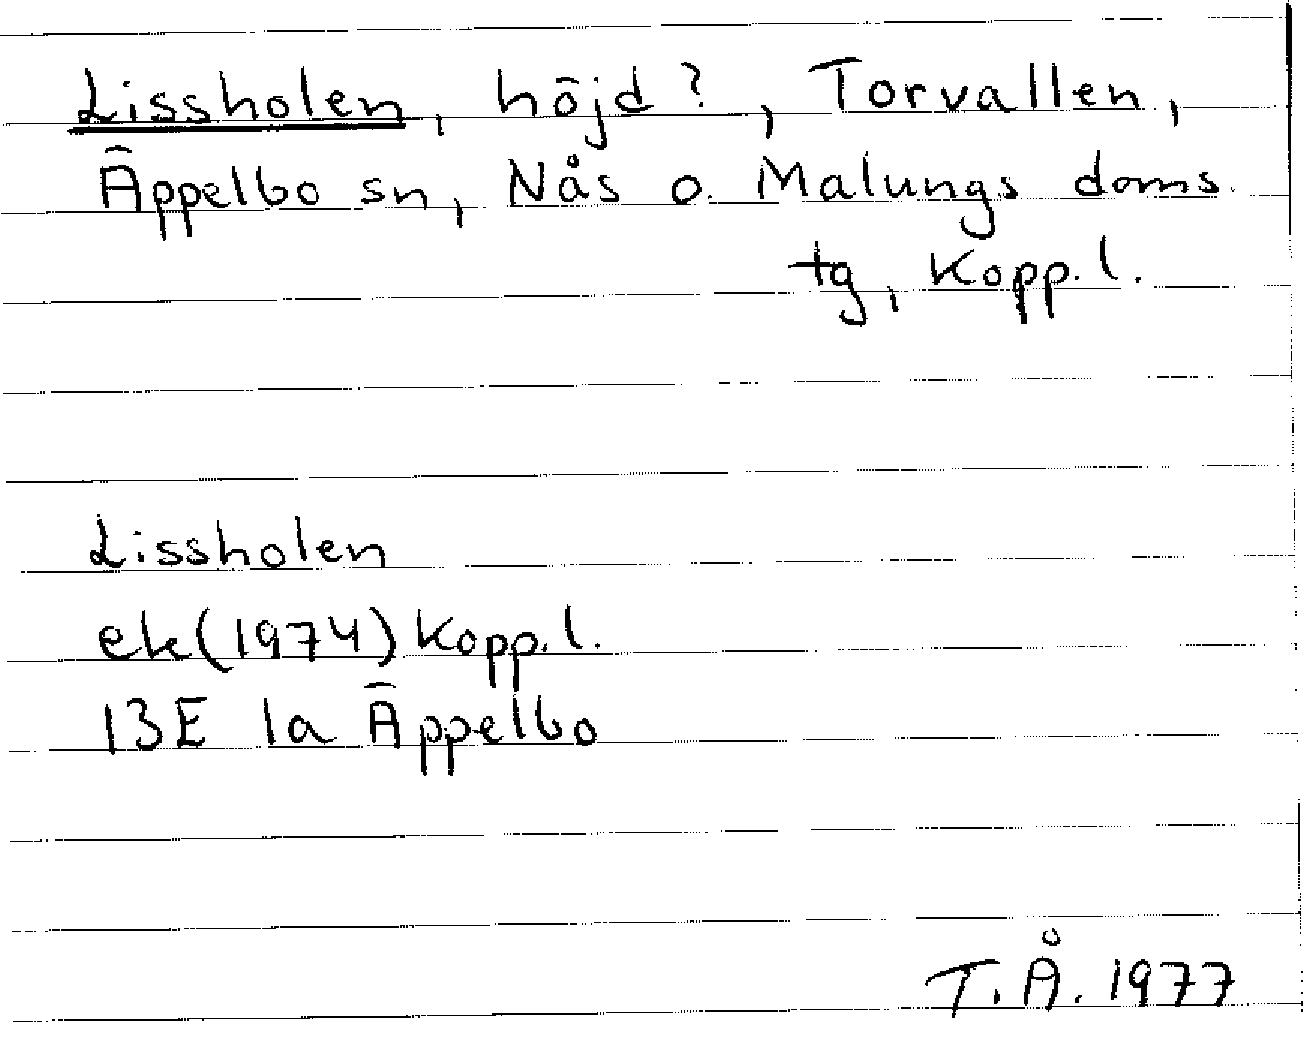 Lissholen, höjd?, Torvallen,
Äppelbo sn, Nås o. Malungs doms.
tg, Kopp. l.
Lissholen
ek (1974) Kopp. l.
13E 1a Äppelbo
T. Å. 1977